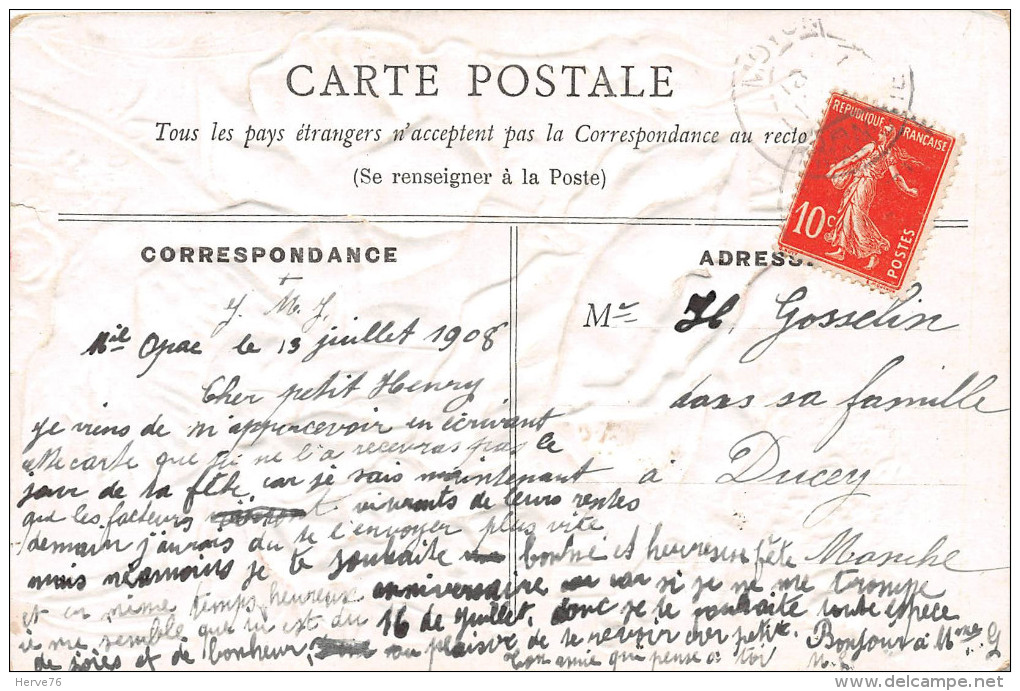 CARTE POSTALE
Tous les pays étrangers n'acceptent pas la Correspondance au recto
(Se renseigner à la Poste)
REPUBLIQUE FRANÇAISE
10c
POSTES
CORRESPONDANCE
ADRESS
J. M. J.
le 13 juillet 1908
Cher petit Henry
je viens de m'appercevoir en écrivant
cette carte que tu ne l'a recevras pas le
jour de ta fête, car je sais maintenant
que les facteurs vivants de leurs rentes
demain j'aurais du te l'envoyer plus vite
mais néamoins je te souhaite bonne et heureuse fête
et en même temps heureuse anniversaire car si je ne me trompe
il me semble que tu est du 16 de Juillet, donc je te souhaite toute espece
de joies et de bonheur, au plaisir de te revoir cher petit. Bonjour à Mmes G
ton amie qui pense à toi
Mr H. Gosselin
dans sa famille
à Ducey
Manche
Herve76
www.delcampe.net